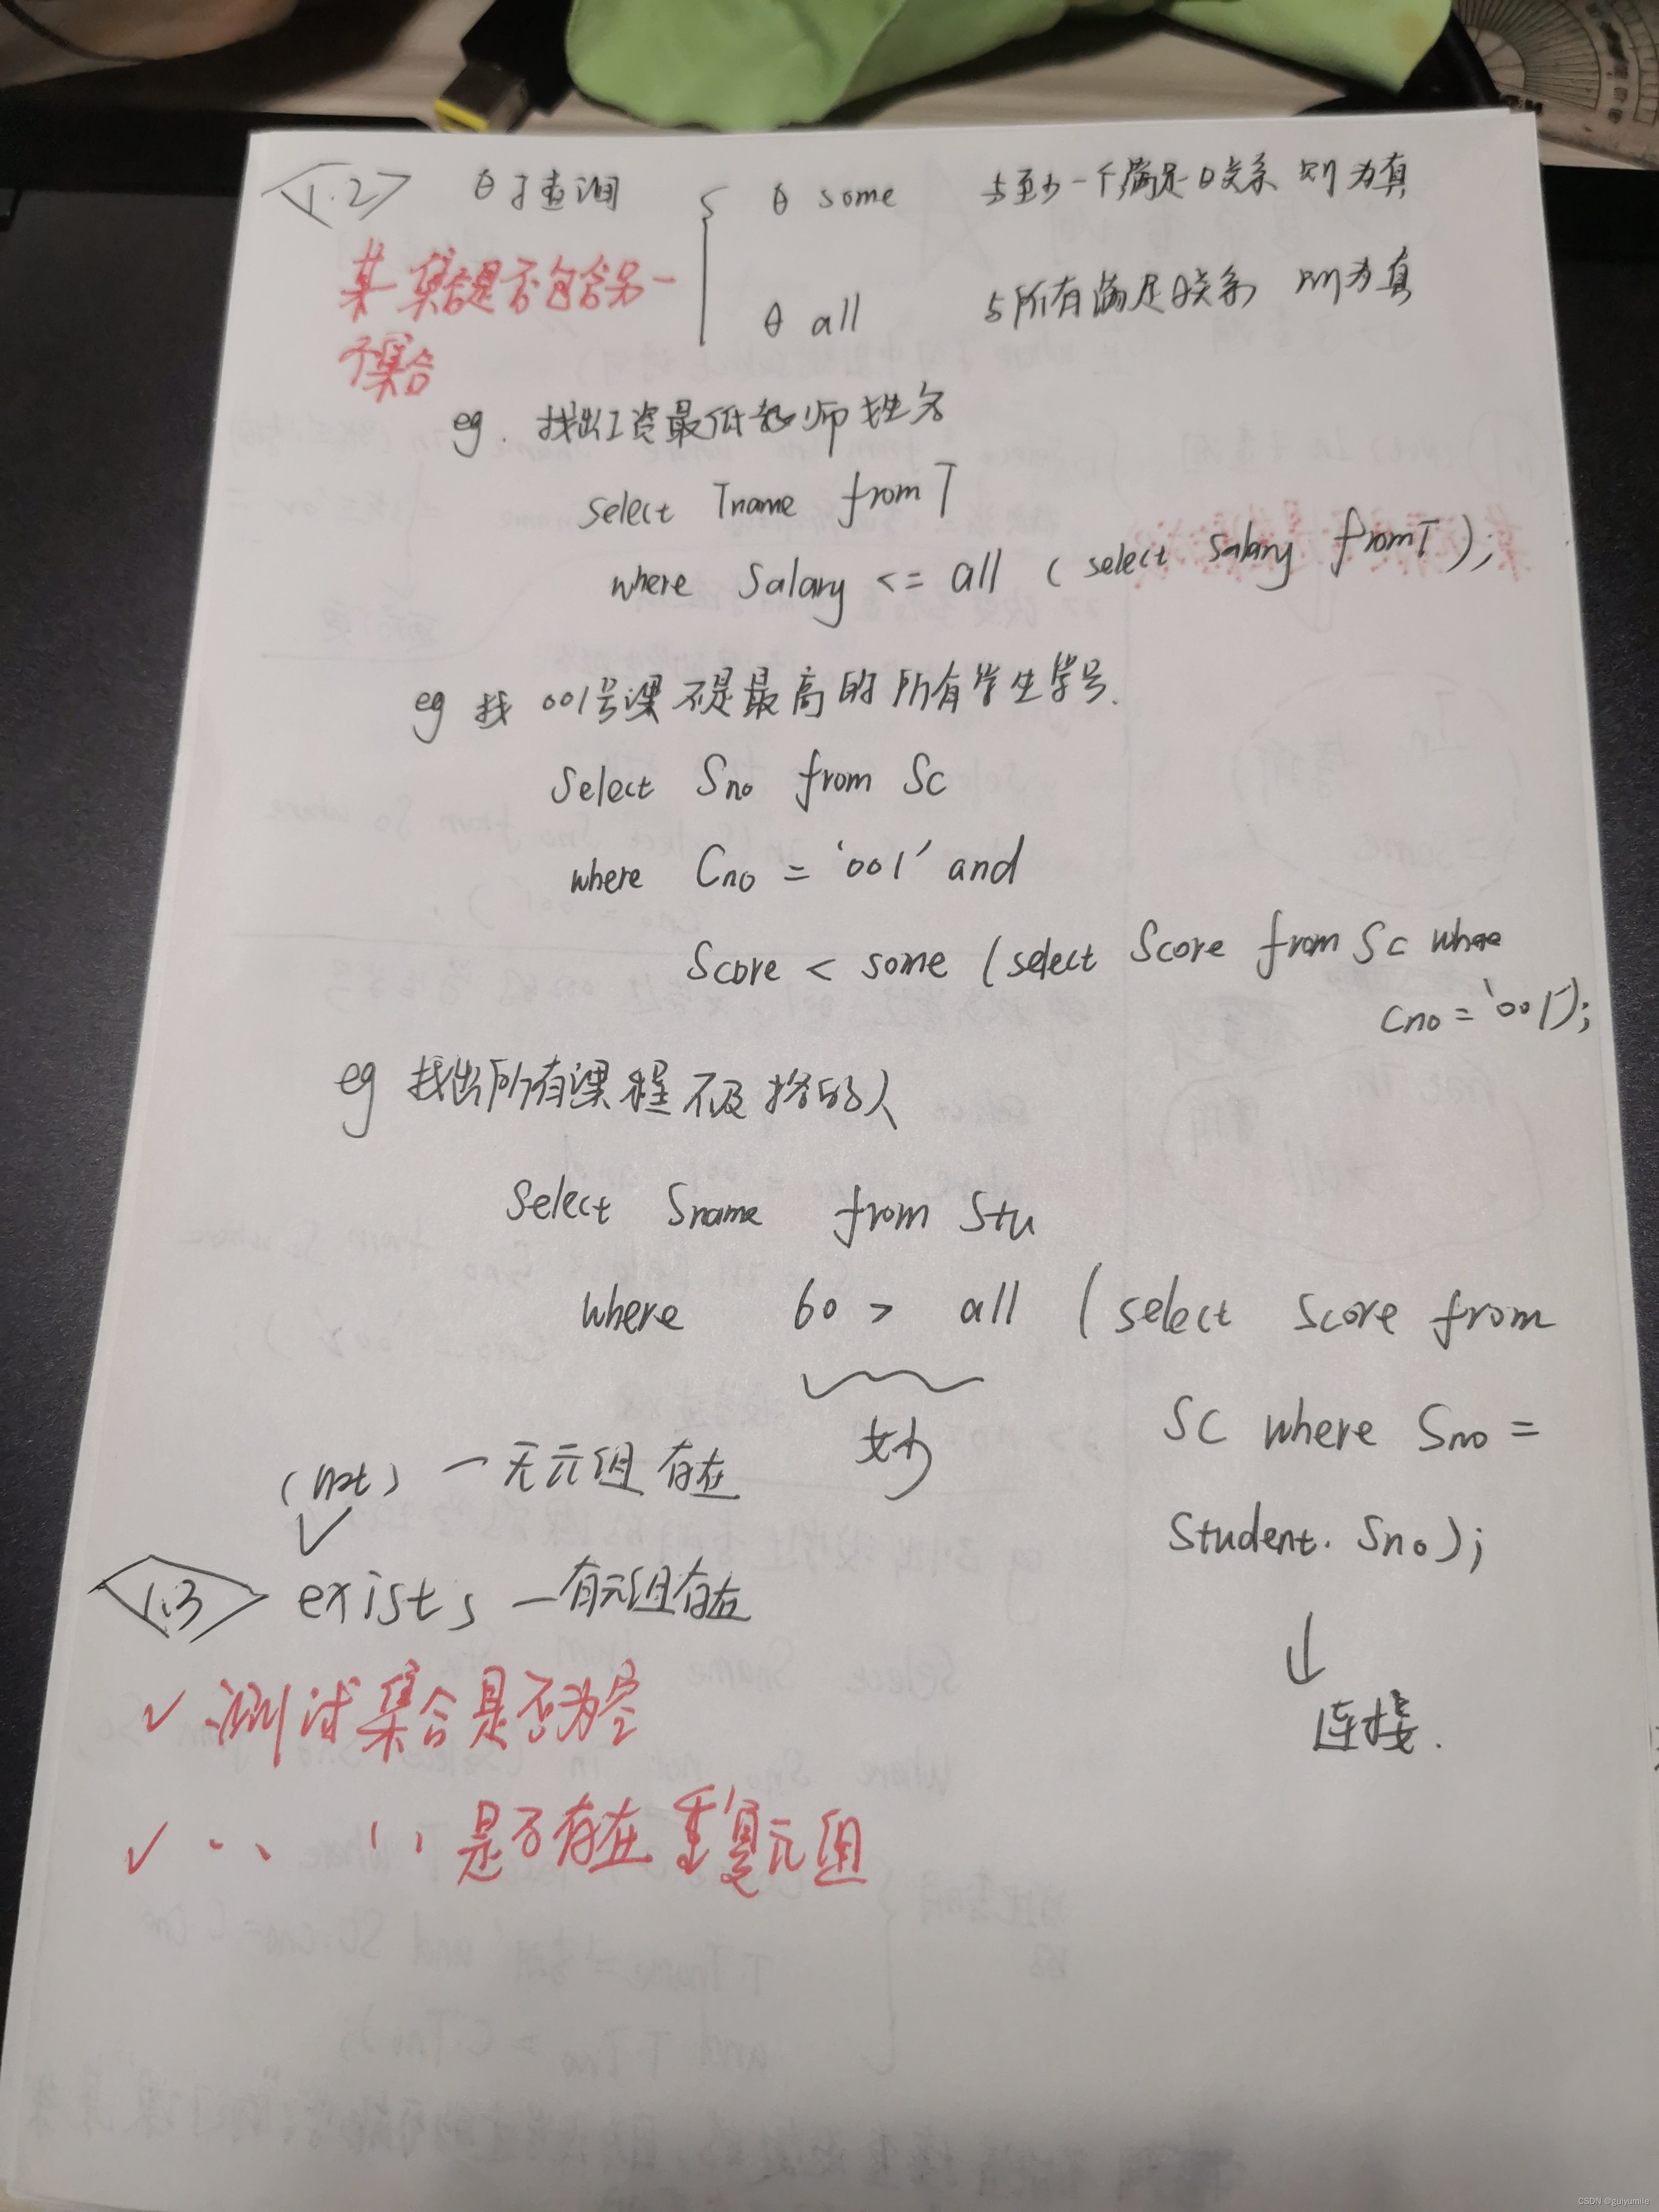 1.2 θ子查询 { θ some 与至少一个满足θ关系 则为真
θ all 与所有满足θ关系 则为真
某一集合是否包含另一
子集合
eg. 找出工资最低教师姓名
select Tname from T
where Salary <= all (select salary from T);
eg 找 001号课不是最高的所有学生学号.
Select Sno from Sc
where Cno = '001' and
Score < some (select Score from Sc where
Cno = '001');
eg 找出所有课程不及格的人
Select Sname from Stu
where 60 > all (select Score from
妙
SC where Sno =
Student. Sno);
连接.
(not) — 无元组存在
1.3 exists — 有元组存在
✓ 测试集合是否为空
✓ 、、 、、 是否存在重复元组
CSDN @guiyumile